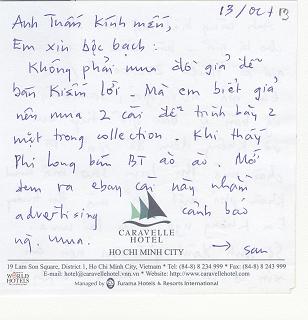 13/Oct 13
Anh Tuấn kính mến,
Em xin bộc bạch:
Không phải mua đồ giả để
bán kiếm lời. Mà em biết giả
nên mua 2 cái để trình bày 2
mặt trong collection. Khi thấy
Phi Long bán BT ào ào. Mới
đem ra ebay cái này nhằm
advertising cảnh báo
ng. mua.
→ sau
CARAVELLE
HOTEL
HO CHI MINH CITY
19 Lam Son Square, District 1, Ho Chi Minh City, Vietnam * Tel: (84-8) 8 234 999 * Fax: (84-8) 8 243 999
E-mail: hotel@caravellehotel.vnn.vn * Website: http://www.caravellehotel.com
Managed by Furama Hotels & Resorts International
HOTELS